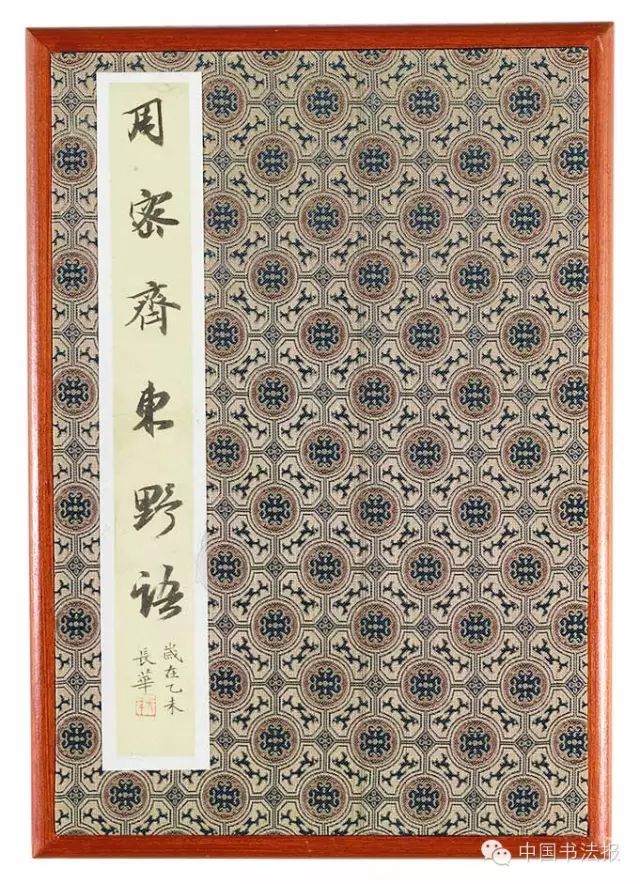 周密齊東野語
歲在乙未
長華
中国书法报